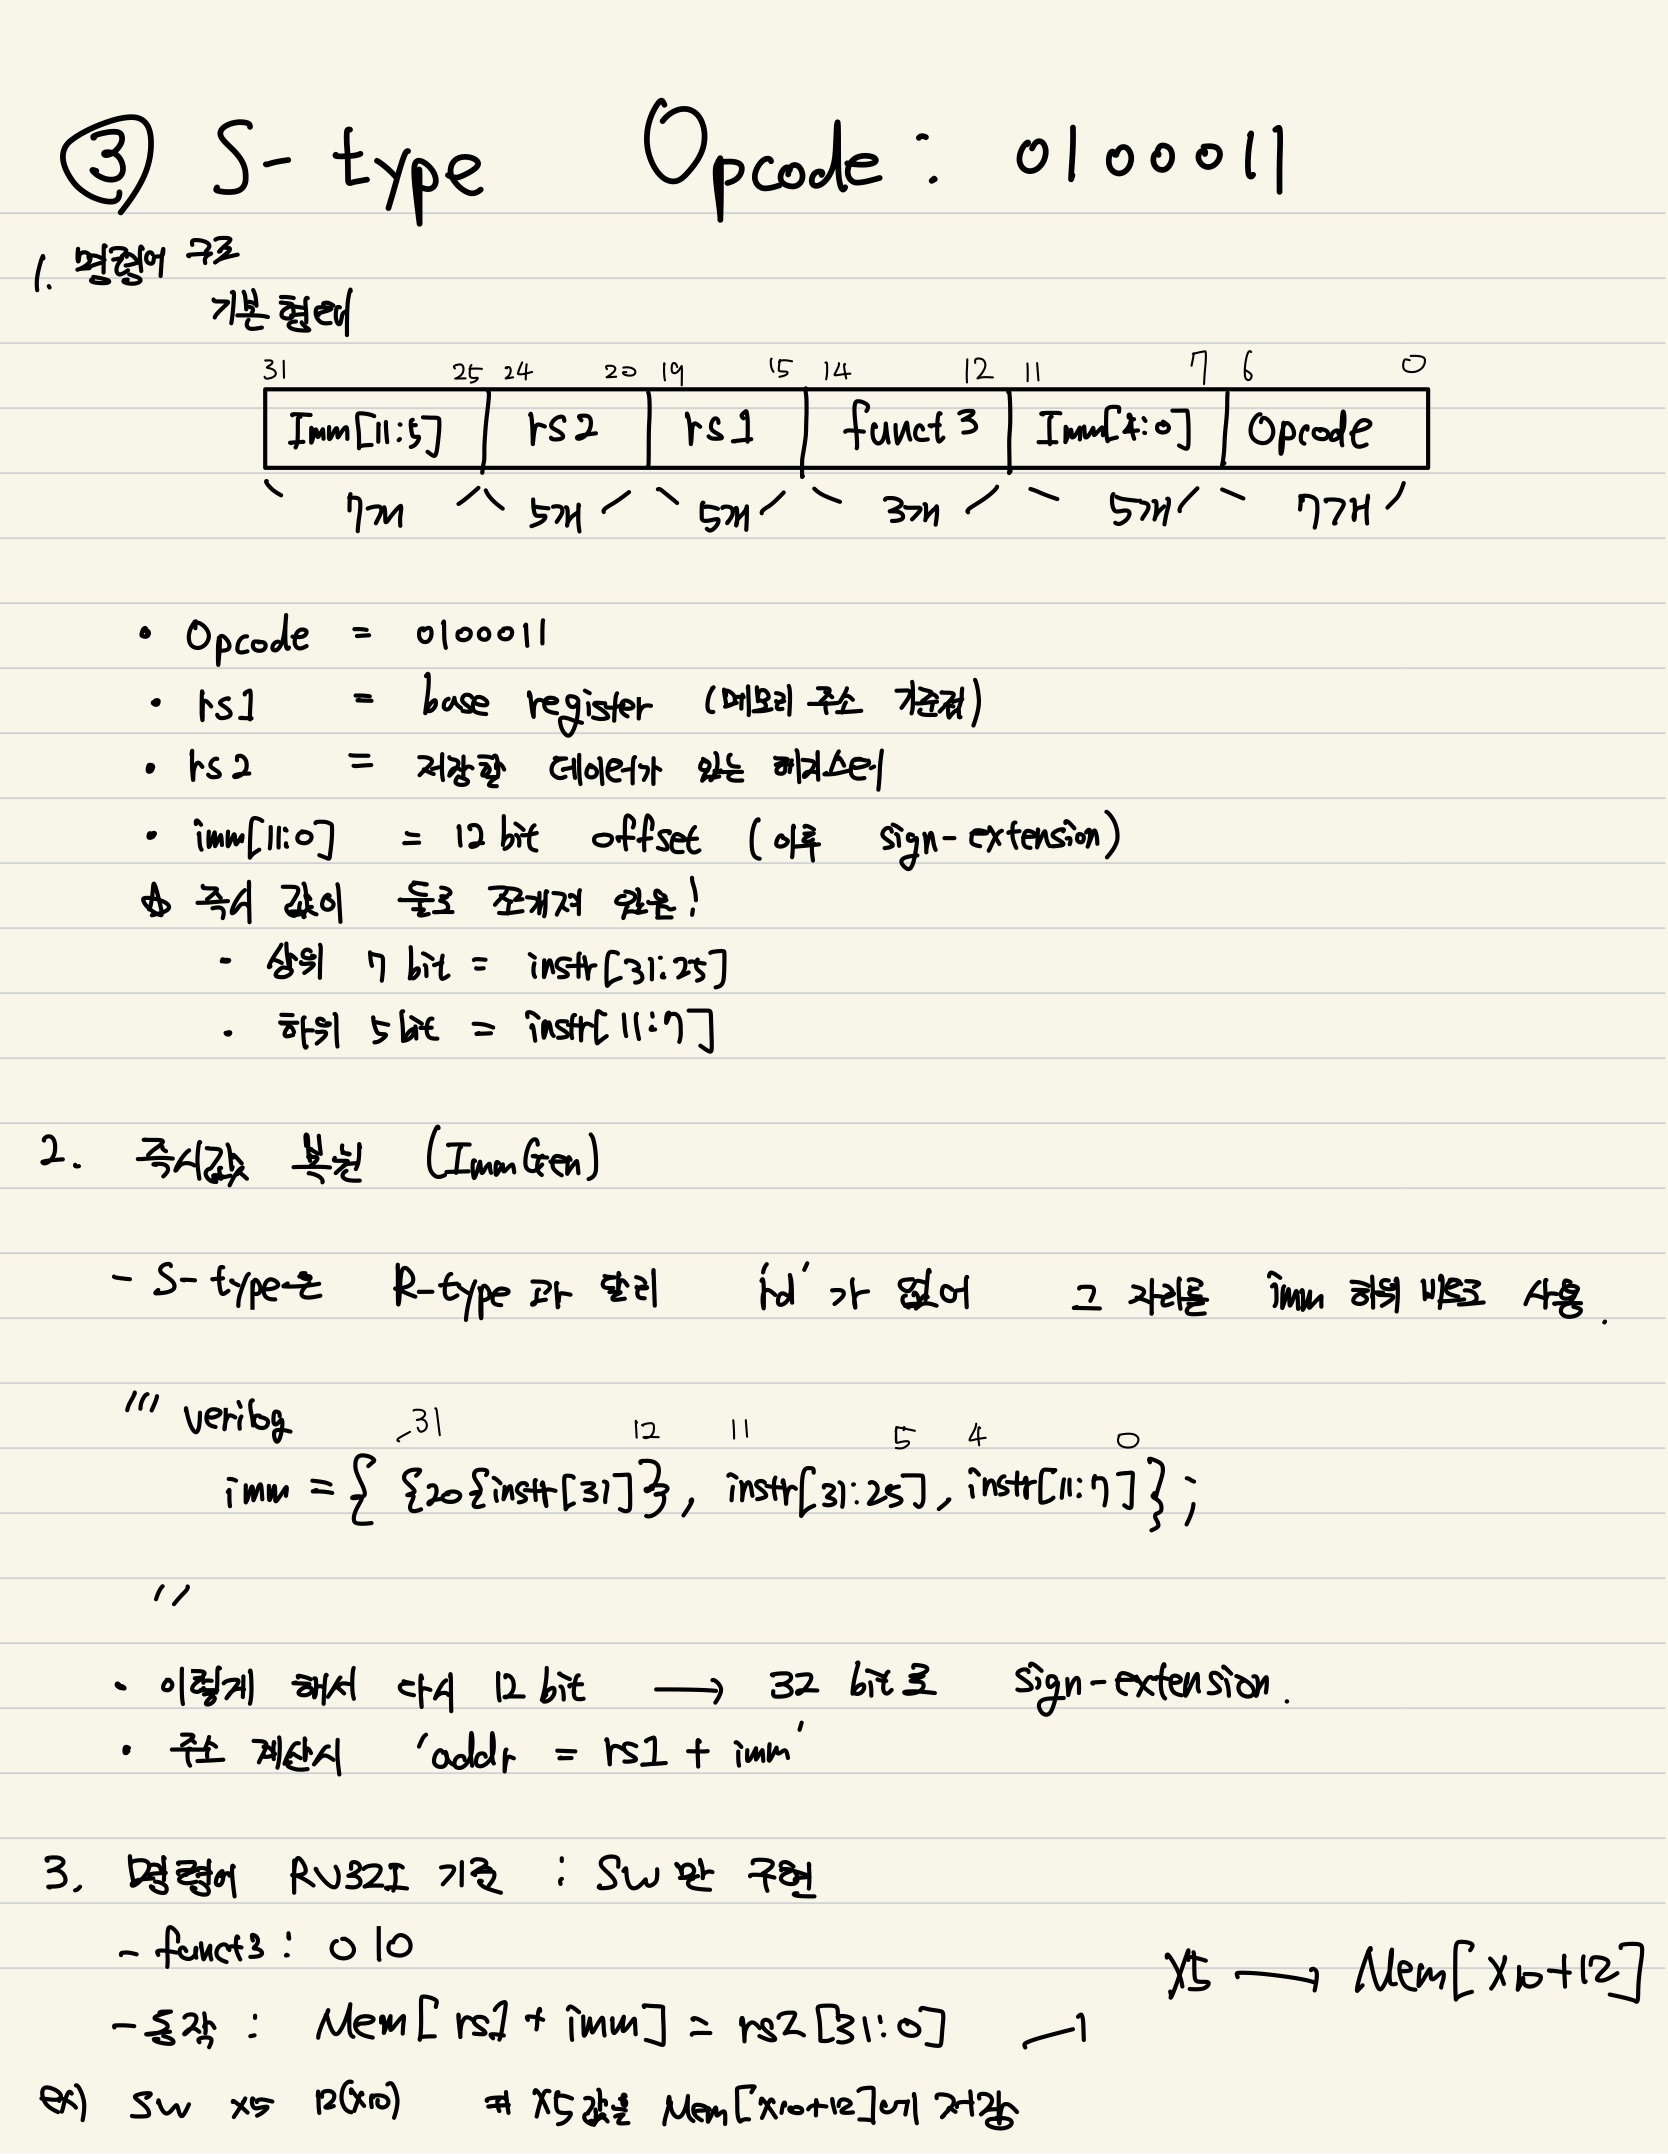 ③ S-type Opcode : 0100011
1. 명령어 구조
기본 형태
31 25 24 20 19 15 14 12 11 7 6 0
Imm[11:5] rs2 rs1 funct3 Imm[4:0] Opcode
7개 5개 5개 3개 5개 7개
• Opcode = 0100011
• rs1 = base register (메모리 주소 기준점)
• rs2 = 저장할 데이터가 있는 레지스터
• imm[11:0] = 12 bit offset (이후 sign-extension)
☆ 즉시 값이 둘로 쪼개져 있음!
- 상위 7 bit = instr[31:25]
- 하위 5 bit = instr[11:7]
2. 즉시값 복원 (ImmGen)
- S-type은 R-type과 달리 'rd'가 없어 그 자리를 imm 하위 비트로 사용.
''' verilog
31 12 11 5 4 0
imm = { {20{instr[31]}, instr[31:25], instr[11:7] };
''
• 이렇게 해서 다시 12 bit → 32 bit로 sign-extension.
• 주소 계산시 'addr = rs1 + imm'
3. 명령어 RV32I 기준 : SW만 구현
- funct3 : 010
X5 → Mem[X10+12]
- 동작 : Mem[rs1 + imm] = rs2[31:0]
ex) SW x5 12(x10) # X5값을 Mem[x10+12]에 저장